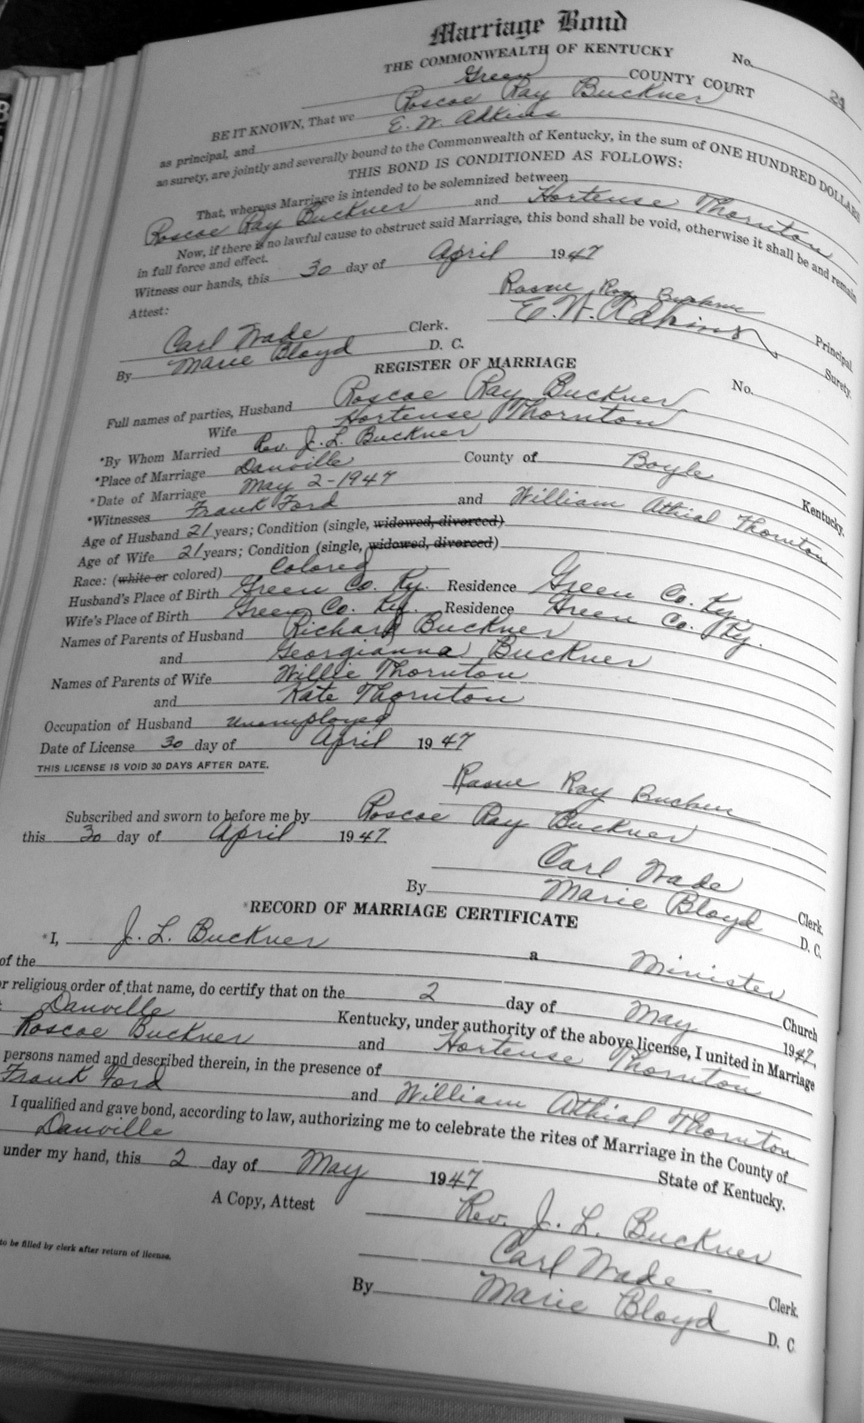 Marriage Bond
THE COMMONWEALTH OF KENTUCKY No. 24
Green COUNTY COURT
BE IT KNOWN, That we Roscoe Ray Buckner
as principal, and E. W. Adkins
as surety, are jointly and severally bound to the Commonwealth of Kentucky, in the sum of ONE HUNDRED DOLLARS
THIS BOND IS CONDITIONED AS FOLLOWS:
That, whereas Marriage is intended to be solemnized between
Roscoe Ray Buckner and Hortense Thornton
Now, if there is no lawful cause to obstruct said Marriage, this bond shall be void, otherwise it shall be and remain
in full force and effect.
Witness our hands, this 30 day of April 1947
Attest: Roscoe Ray Buckner Principal.
Carl Wade Clerk. E. W. Adkins Surety.
By Marie Bloyd D. C.
REGISTER OF MARRIAGE No.
Full names of parties, Husband Roscoe Ray Buckner
Wife Hortense Thornton
*By Whom Married Rev. J. L. Buckner
*Place of Marriage Danville County of Boyle Kentucky.
*Date of Marriage May 2-1947
*Witnesses Frank Ford and William Athial Thornton
Age of Husband 21 years; Condition (single, widowed, divorced)
Age of Wife 21 years; Condition (single, widowed, divorced)
Race: (white or colored) Colored
Husband's Place of Birth Green Co. Ky. Residence Green Co. Ky.
Wife's Place of Birth Green Co. Ky. Residence Green Co. Ky.
Names of Parents of Husband Richard Buckner
and Georgianna Buckner
Names of Parents of Wife Willie Thornton
and Kate Thornton
Occupation of Husband Unemployed
Date of License 30 day of April 1947
THIS LICENSE IS VOID 30 DAYS AFTER DATE.
Roscoe Ray Buckner
Subscribed and sworn to before me by Roscoe Ray Buckner
this 30 day of April 1947
Carl Wade Clerk
By Marie Bloyd D. C.
*RECORD OF MARRIAGE CERTIFICATE
*I, J. L. Buckner a Minister
of the Church
or religious order of that name, do certify that on the 2 day of May 1947,
Danville Kentucky, under authority of the above license, I united in Marriage
Roscoe Buckner and Hortense Thornton
persons named and described therein, in the presence of
Frank Ford and William Athial Thornton
I qualified and gave bond, according to law, authorizing me to celebrate the rites of Marriage in the County of
Danville State of Kentucky.
under my hand, this 2 day of May 1947
Rev. J. L. Buckner
A Copy, Attest Carl Wade Clerk.
By Marie Bloyd D. C
to be filled by clerk after return of license.